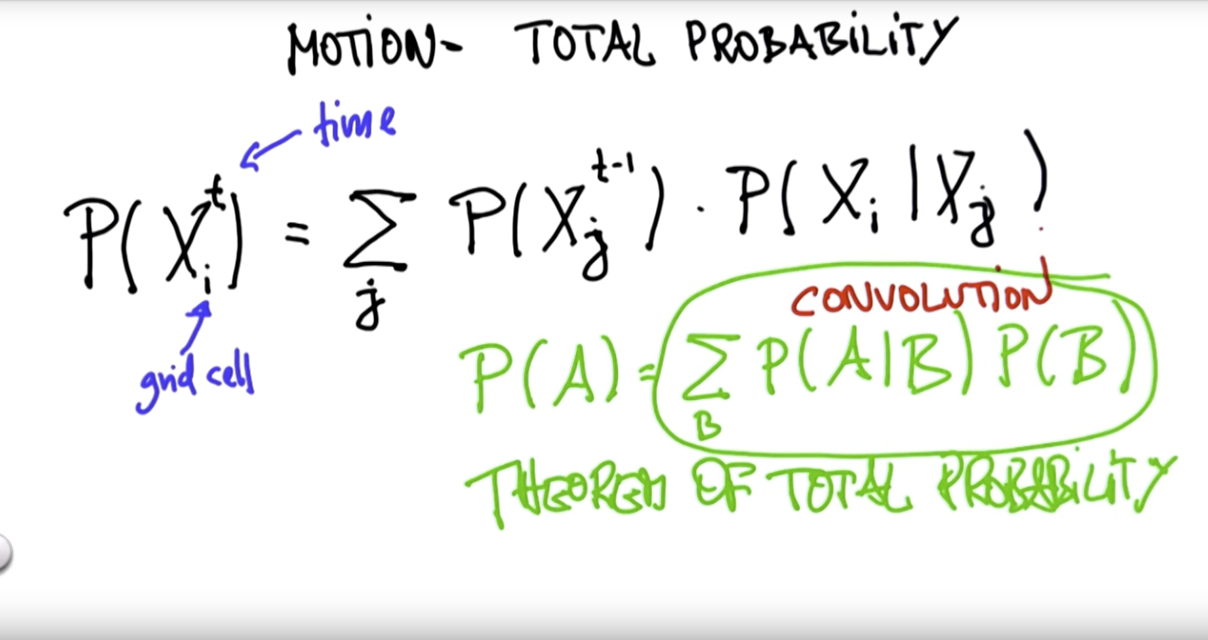 MOTION- TOTAL PROBABILITY
time
P(X_i^t) = Σ_j P(X_j^{t-1}) . P(X_i | X_j)
grid cell
CONVOLUTION
P(A) = Σ_B P(A|B) P(B)
THEOREM OF TOTAL PROBABILITY